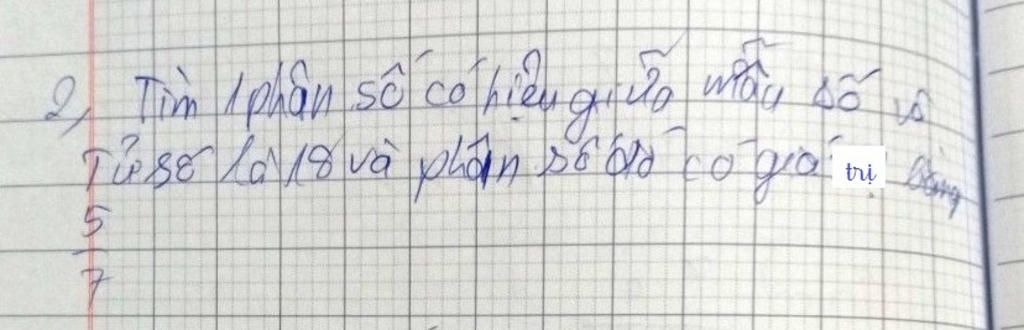 2, Tìm 1 phân số có hiệu giữa mẫu số và
Tử số là 18 và phân số đó có giá trị bằng
5
7